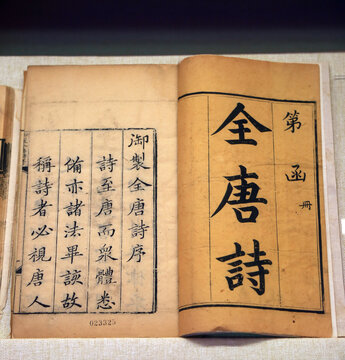 第 函 冊
全唐詩
御製全唐詩序
詩至唐而衆體悉
備亦諸法畢該故
稱詩者必視唐人
023525